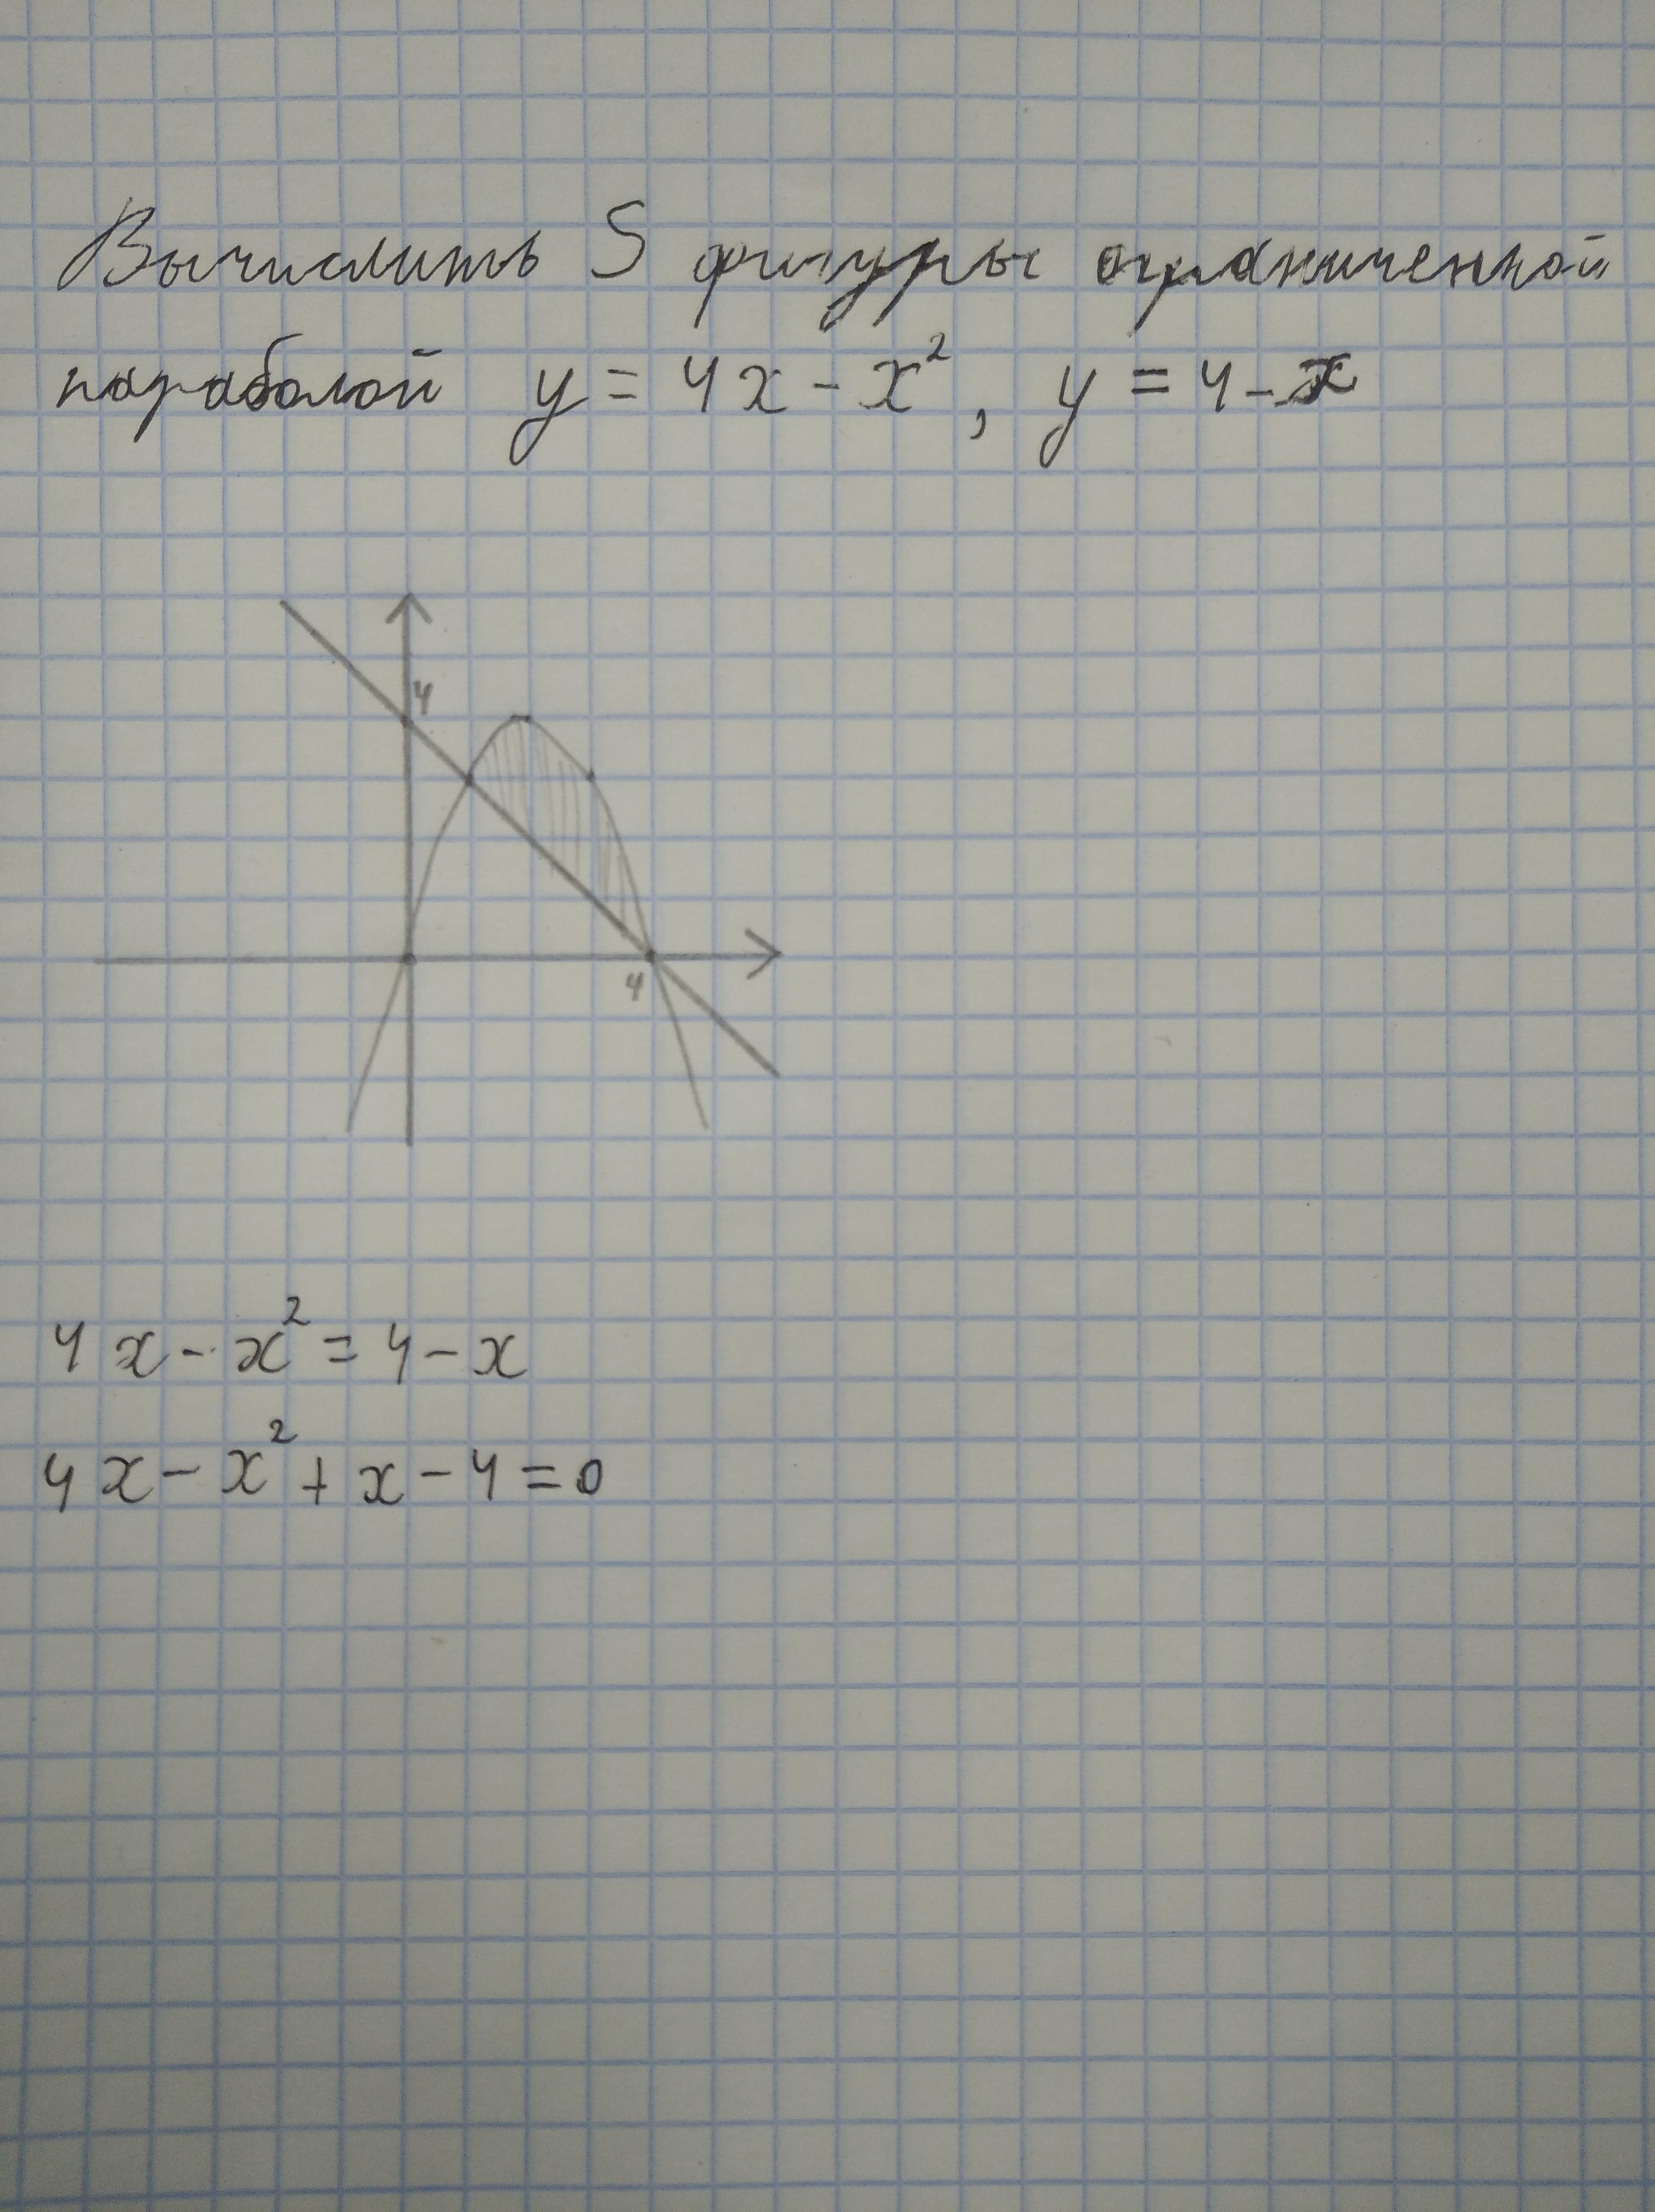 Вычислить S фигуры ограниченной
параболой y = 4x - x², y = 4 - x
4
4
4x - x² = 4 - x
4x - x² + x - 4 = 0